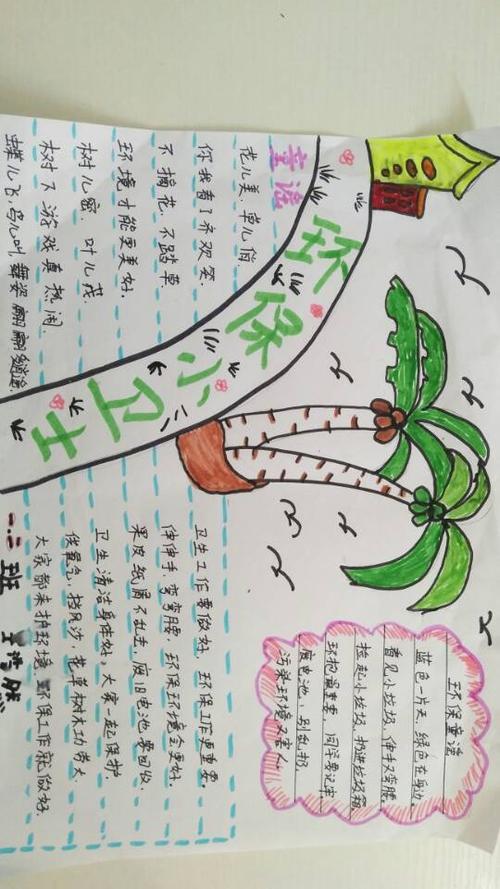 环保小卫士
童谣
花儿美、草儿俏
你我看了齐欢笑.
不摘花、不踏草
环境才能更美好.
树儿密、叶儿茂
树下游戏真热闹.
蝶儿飞,鸟儿叫,舞姿翩翩多逍遥.
环保童谣
蓝色一片天,绿色在身边.
看见小垃圾,伸手又弯腰.
捡起小垃圾,扔进垃圾箱.
环保最重要,同学要记牢
废电池,别乱扔,
污染环境又害人.
卫生工作要做好,环保工作更重要.
伸伸手,弯弯腰,环保环境会更好.
果皮纸屑不乱丢,废旧电池要回收.
卫生清洁身体好,大家一起保护.
供氧气,挡风沙,花草树木功劳大.
大家都来护环境,环保工作就做好.
一.二班